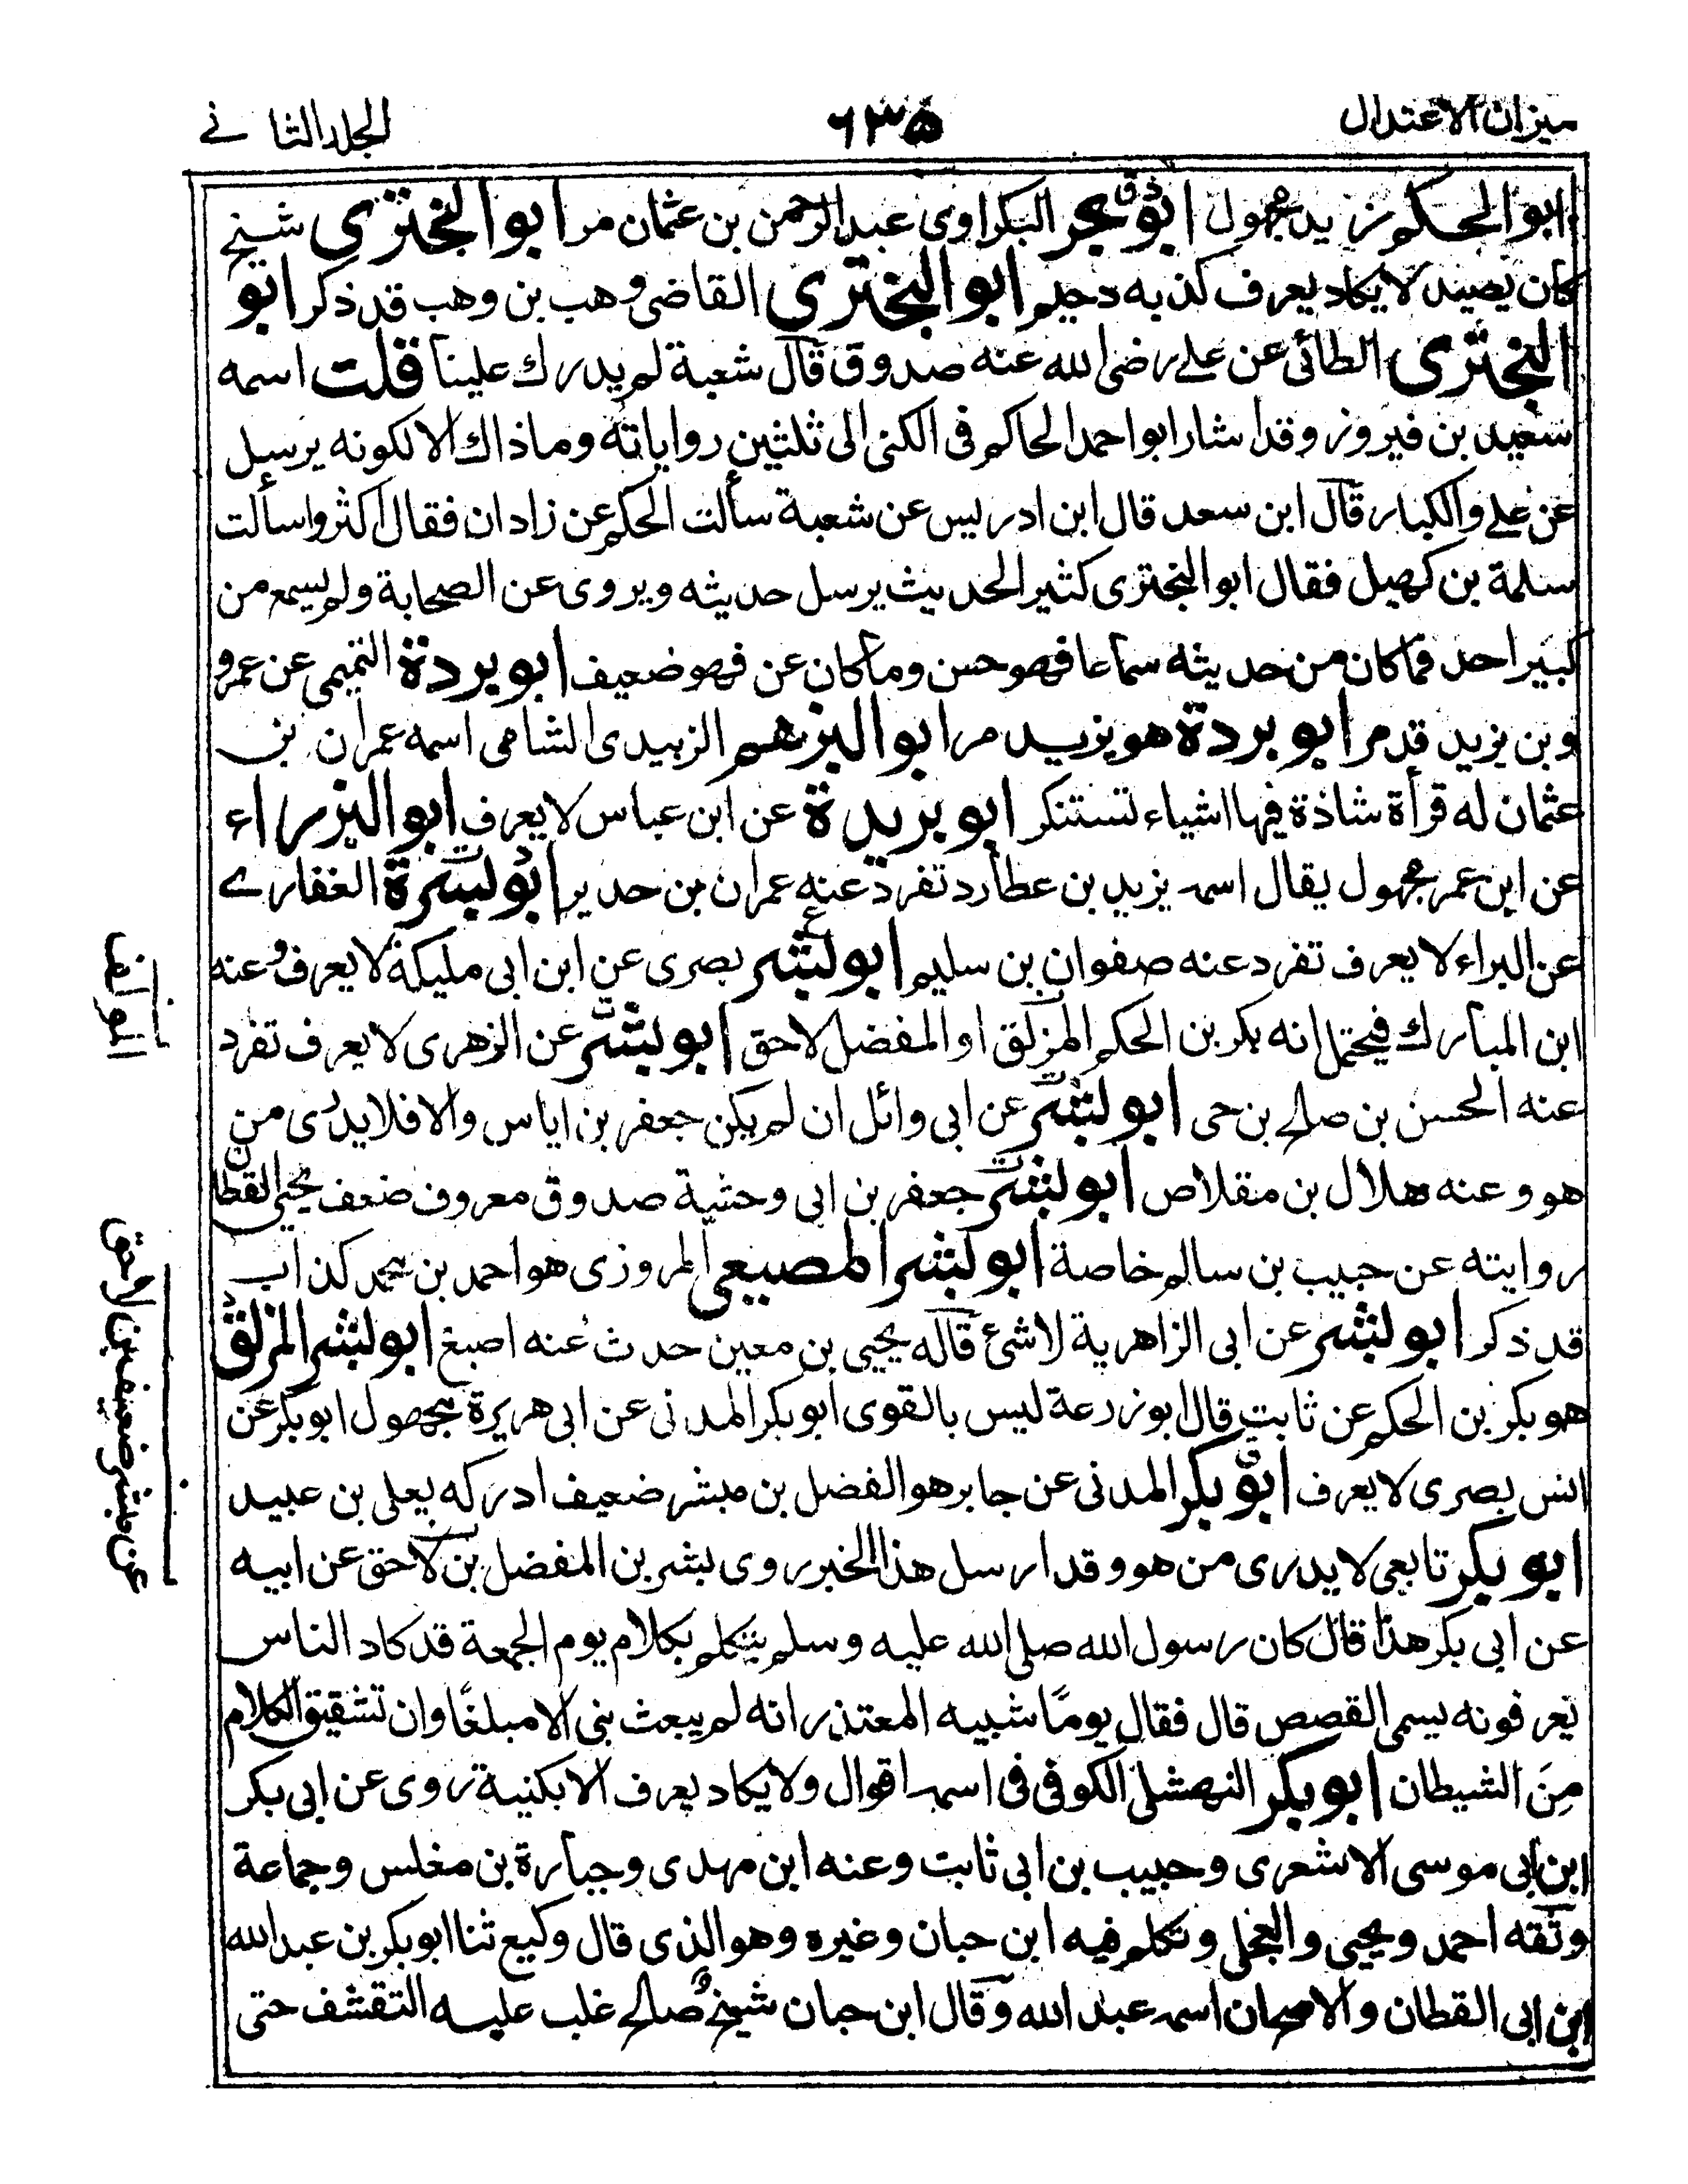 ميزان الاعتدال
٦٣٥
الجلد الثاني
ابو الحكم زيد مجهول ابو بحر البكراوى عبد الرحمن بن عثمان مر ابو البخترى شيخ
كان بصيدا لا يكاد يعرف كذبه دحيم ابو البخترى القاضى وهب بن وهب قد ذكر ابو
البخترى الطائى عن على رضى الله عنه صدوق قال شعبة لم يدرك علينا قلت اسمه
سعيد بن فيروز وقد اشار ابو احمد الحاكم فى الكنى الى ثلثين رواياته وما ذاك الا لكونه يرسل
عن على والكبار قال ابن سعد قال ابن ادريس عن شعبة سألت الحكم عن زاذان فقال اكثر واسألت
سلمة بن كهيل فقال ابو البخترى كثير الحديث يرسل حديثه ويروى عن الصحابة ولم يسمع من
كبير احد فما كان من حديثه سماعا فهو حسن وما كان عن فهو ضعيف ابو بردة التميمى عن عمرو
وبن يزيد قد مر ابو بردة هو بزيد مر ابو البرهسم الزبيدى الشامى اسمه عمران بن
عثمان له قرأة شاذة فيها اشياء تستنكر ابو بريدة عن ابن عباس لا يعرف ابو البزراء
عن ابن عمر مجهول يقال اسمه يزيد بن عطارد تفرد عنه عمران بن حدير ابو بسرة الغفارے
عن البراء لا يعرف تفرد عنه صفوان بن سليم ابو بشر بصرى عن ابن ابى مليكة لا يعرف وعنه
ابن المبارك فيحتمل انه بكر بن الحكم المزلق او المفضل لاحق ابو بشر عن الزهرى لا يعرف تفرد
عنه الحسن بن صالح بن حى ابو بشر عن ابى وائل ان لم يكن جعفر بن اياس والا فلا يدرى من
هو وعنه هلال بن مقلاص ابو بشر جعفر بن ابى وحشية صدوق معروف ضعف يحيى القطان
روايته عن حبيب بن سالم خاصة ابو بشر المصيعى المروزى هو احمد بن محمد كذاب
قد ذكر ابو بشر عن ابى الزاهرية لا شئ قاله يحيى بن معين حدث عنه اصبغ ابو بشر المزلق
هو بكر بن الحكم عن ثابت قال ابو زرعة ليس بالقوى ابو بكر المدنى عن ابى هريرة مجهول ابو بكر عن
انس بصرى لا يعرف ابو بكر المدنى عن جابر هو الفضل بن مبشر ضعيف ادركه يعلى بن عبيد
ابو بكر تابعى لا يدرى من هو وقد ارسل هذا الخبر روى بشر بن المفضل بن لاحق عن ابيه
عن ابى بكر هذا قال كان رسول الله صلى الله عليه وسلم يتكلم بكلام يوم الجمعة قد كاد الناس
يعرفونه يسمى القصص قال فقال يومًا شبيه المعتذر انه لم يبعث نبى الا مبلغًا وان تشقيق الكلام
مِنَ الشيطان ابو بكر النهشلى الكوفى فى اسمه اقوال ولا يكاد يعرف الا بكنيته روى عن ابى بكر
ابن ابى موسى الاشعرى وحبيب بن ابى ثابت وعنه ابن مهدى وجبارة بن مغلس وجماعة
وثقه احمد ويحيى والعجلى وتكلم فيه ابن حبان وغيره وهو الذى قال وكيع ثنا ابو بكر بن عبد الله
ابن ابى القطان والاصحان اسمه عبد الله وقال ابن حبان شيخ صالح غلب عليه التقشف حتى